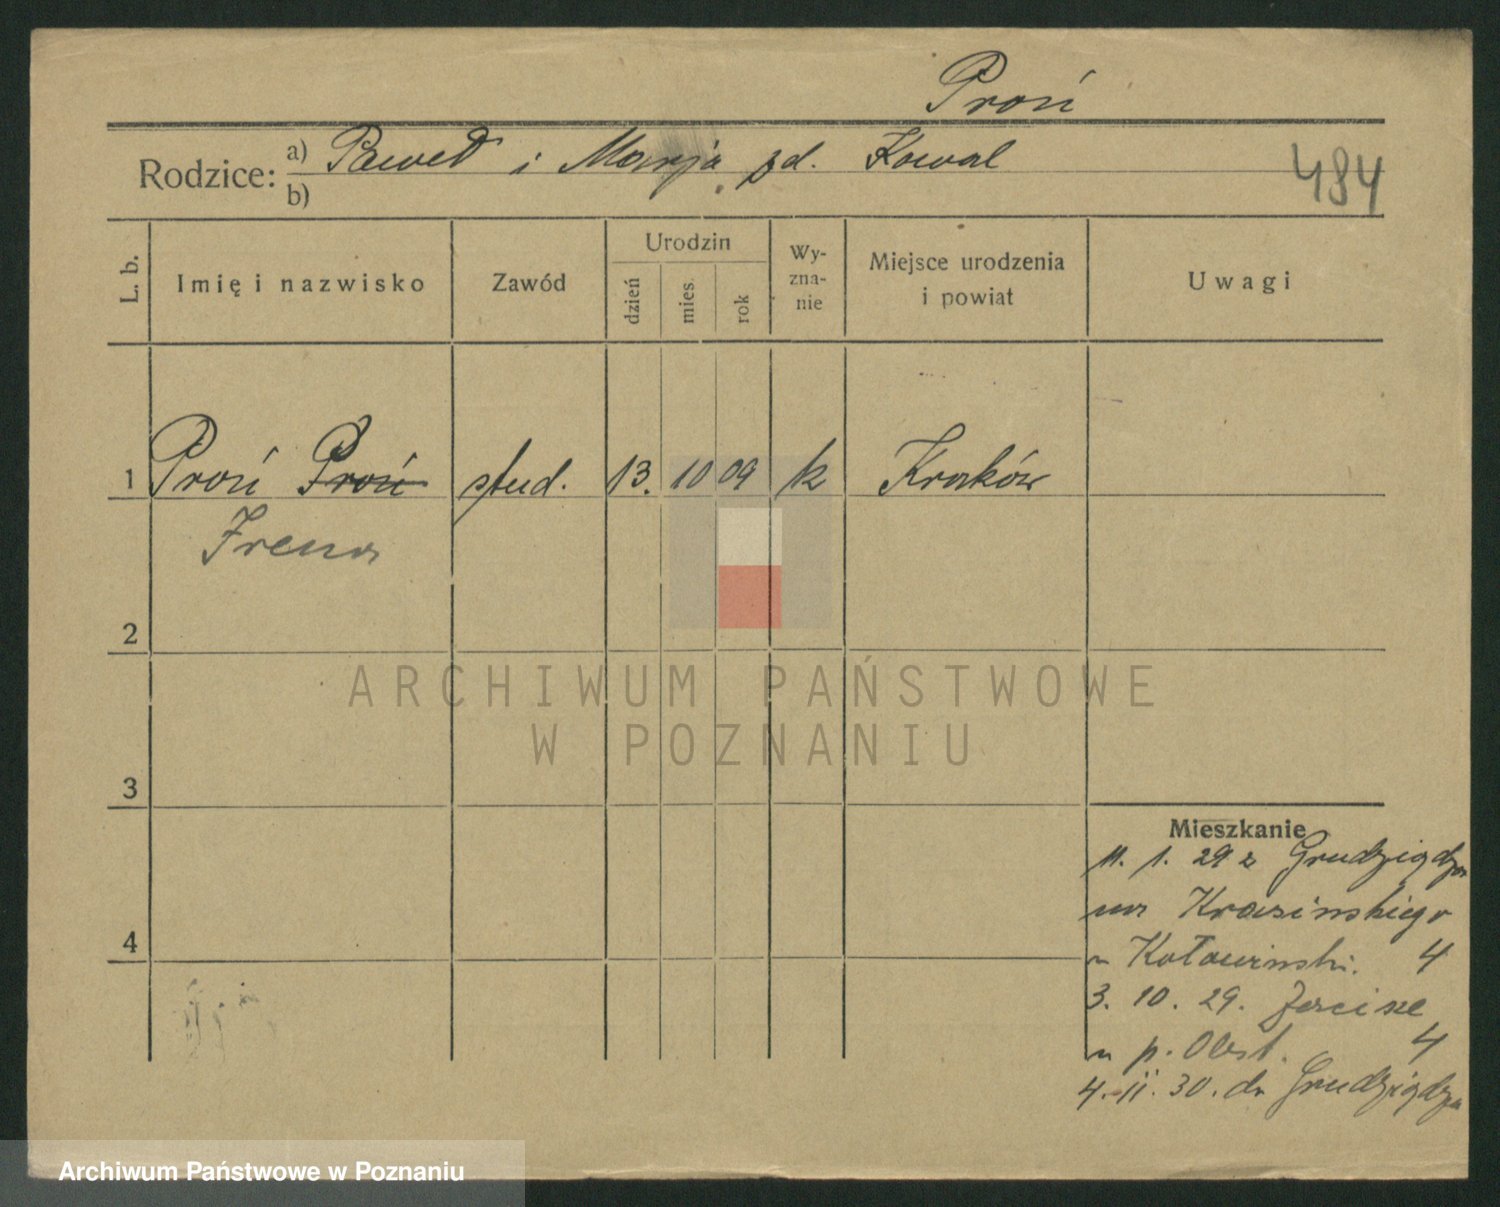 Proń
Rodzice: a) Paweł i Marja zd. Kowal
b)
484
L. b.
Imię i nazwisko
Zawód
Urodzin
dzień
mies.
rok
Wy-
zna-
nie
Miejsce urodzenia
i powiat
Uwagi
1 Proń Proń stud. 13. 10 09 k Kraków
Irena
2
3
4
Mieszkanie
11. 1. 29 z Grudziądza
na Krasińskiego
4
3. 10. 29.
u p. 4
4. II. 30. do Grudziądza
ARCHIWUM PAŃSTWOWE
W POZNANIU
Archiwum Państwowe w Poznaniu